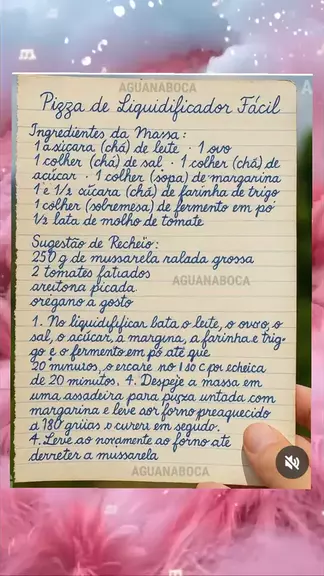 AGUANABOCA
Pizza de Liquidificador Fácil
Ingredientes da Massa:
1 axicara (chá) de leite · 1 ovo
1 colher (chá) de sal · 1 colher (chá) de
açúcar · 1 colher (sopa) de margarina
1 e 1/2 cúcara (chá) de farinha de trigo
1 colher (sobremesa) de fermento em pó
1/2 lata de molho de tomate
Sugestão de Recheio:
250 g de mussarela ralada grossa
2 tomates fatiados
AGUANABOCA
areitona picada
orégano a gosto
1. No liquidifificar bata o leite, o ovoo, o
sal, o açúcar, a margina, a farinha e trig-
go e o fermento em pó até que
20 minuros, o ercare no 180 c por echeica
de 20 minutos. 4. Despeje a massa em
uma assadeira para puzza untada com
margarina e leve aor forno preaquecido
a 180 grüas o cureri em segudo.
4. Leve ao noramente ao forno até
derreter a mussarela
AGUANABOCA